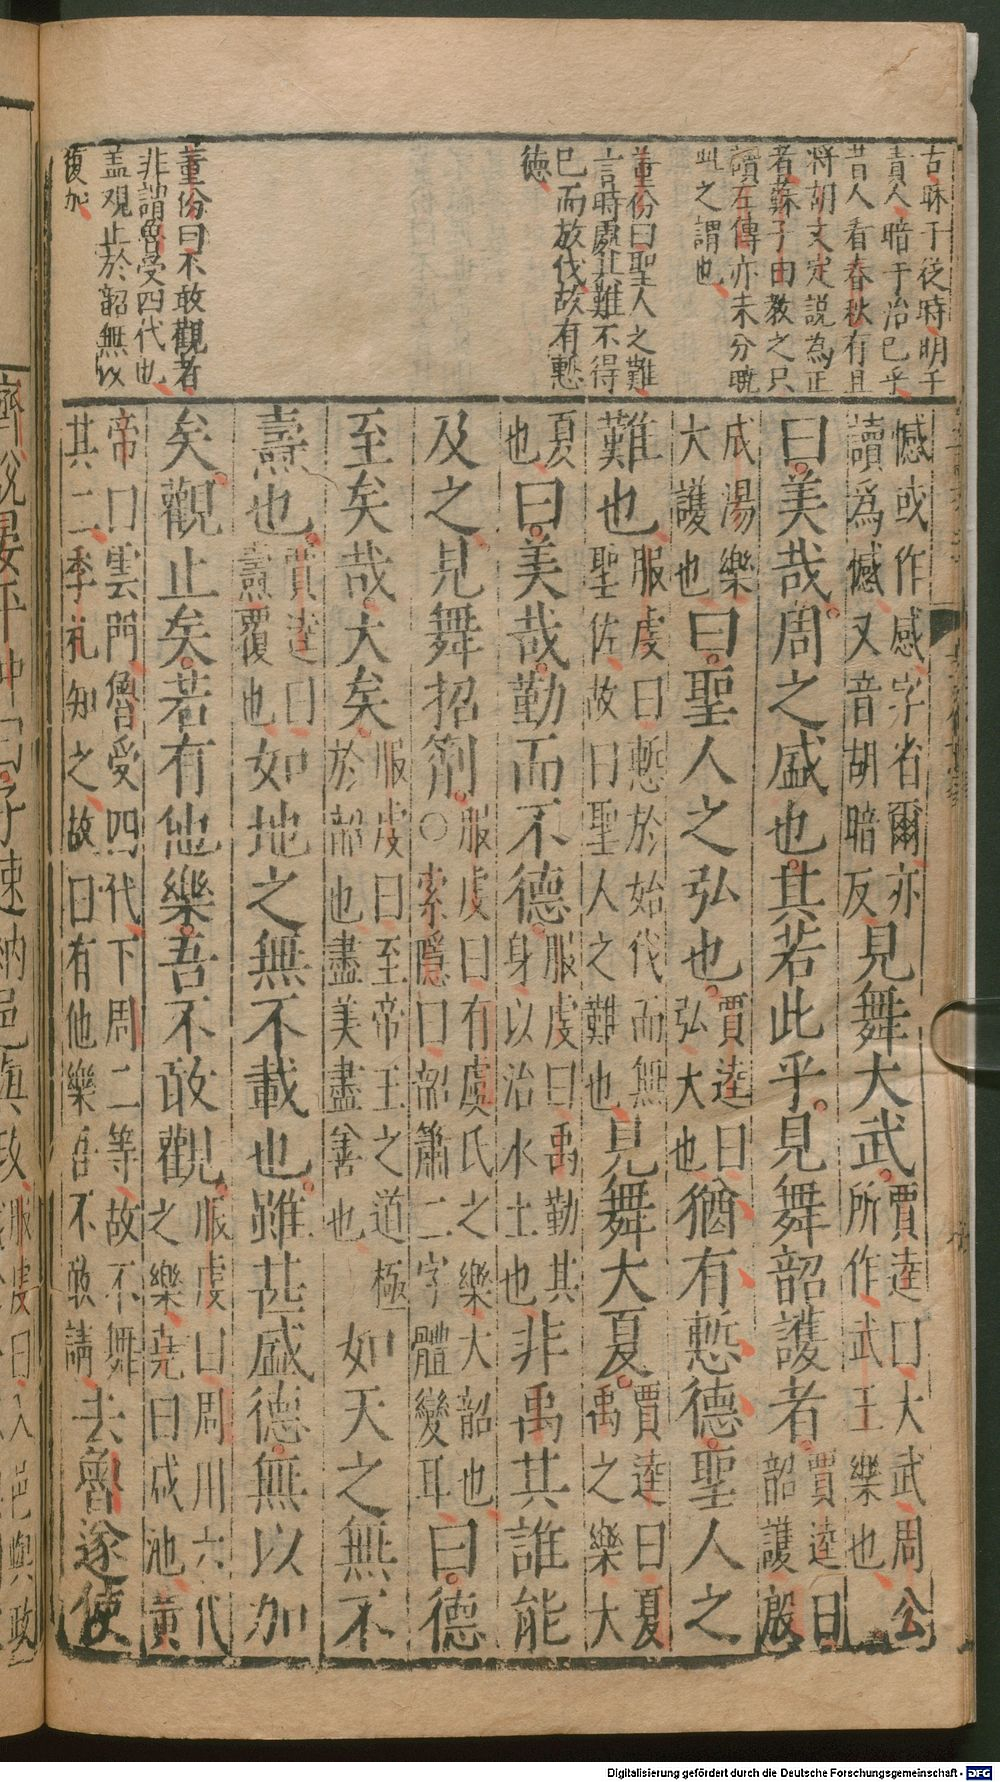 古昧于從時明于
責人暗于治已乎
昔人看春秋有且
將胡文定説為正
者蘇子由教之只
讀左傳亦未分曉
此之謂也
董份曰聖人之難
言時處其難不得
已而放伐故有慙
德
董份曰不敢觀者
非謂魯受四代也
盖观止於韶無以
復加
憾或作感字省爾亦
讀為憾又音胡暗反
見舞大武
賈逵曰大武周公
所作武王樂也
曰美哉周之盛也其若此乎見舞韶護者
賈逵曰
韶護殷
成湯樂
大護也
曰聖人之弘也
賈逵曰
弘大也
猶有慙德聖人之
難也
服虔曰慙於始伐而無
聖佐故曰聖人之難也
見舞大夏
賈逵曰夏
禹之樂大
夏
也
曰美哉勤而不德
服虔曰禹勤其
身以治水土也
非禹其誰能
及之見舞招箾
服虔曰有虞氏之樂大韶也
○索隱曰韶簫二字體變耳
曰德
至矣哉大矣
服虔曰至帝王之道極
於韶也盡美盡善也
如天之無不
燾也
賈逵曰
燾覆也
如地之無不載也雖甚盛德無以加
矣觀止矣若有他樂吾不敢觀
服虔曰周用六代
之樂堯曰咸池黃
帝曰雲門魯受四代下周二等故不舞
其二季札知之故曰有他樂吾不敢請
去魯遂使
齊説晏平仲曰子速納邑與政
服虔曰入邑與政
Digitalisierung gefördert durch die Deutsche Forschungsgemeinschaft - DFG